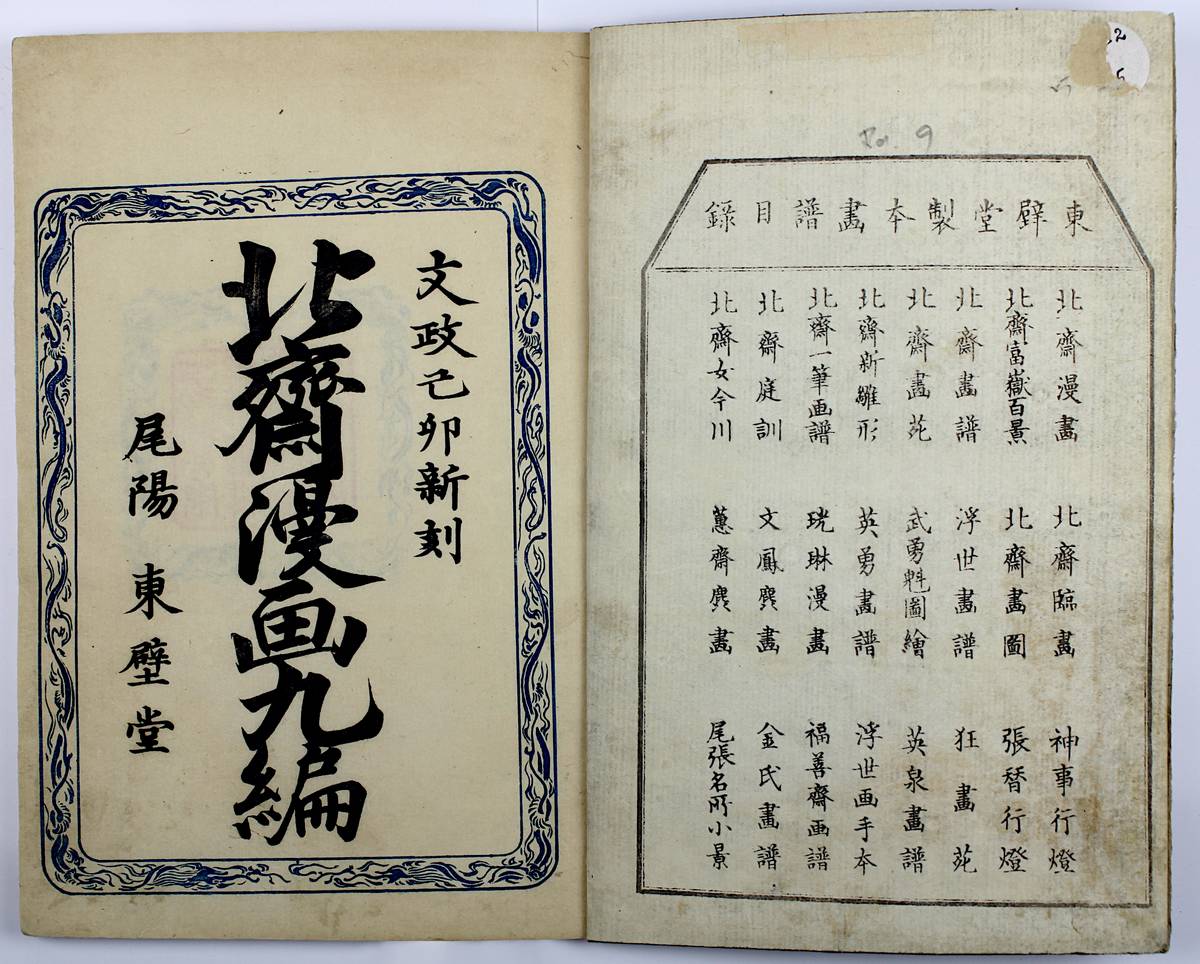 東壁堂製本畫譜目録
北齋漫畫
北齋富嶽百景
北齋畫譜
北齋畫苑
北齋新雛形
北齋一筆画譜
北齋庭訓
北齋女今川
北齋臨畫
北齋畫圖
浮世畫譜
武勇魁圖繪
英勇畫譜
光琳漫畫
文鳳麁畫
蕙齋麁畫
神事行燈
張替行燈
狂畫苑
英泉畫譜
浮世画手本
福善齋画譜
金氏畫譜
尾張名所小景
文政己卯新刻
北齋漫画九編
尾陽 東壁堂
9